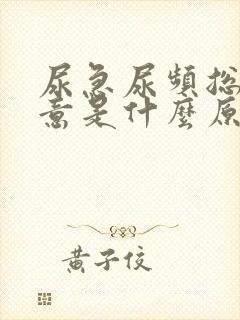 尿急尿頻總
意是什麼原
黃子佼